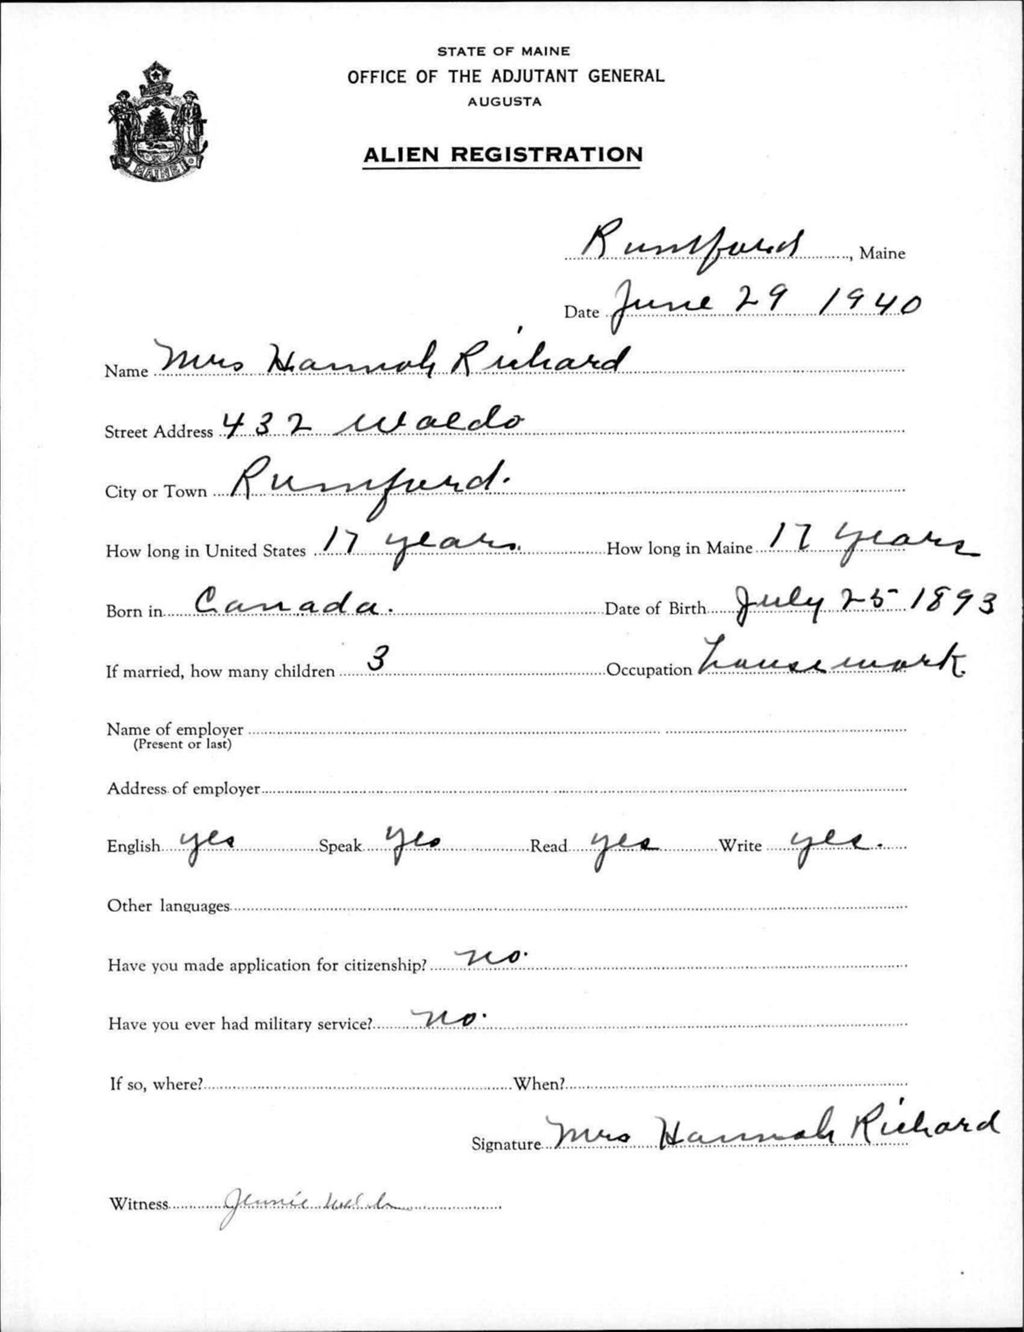 STATE OF MAINE
OFFICE OF THE ADJUTANT GENERAL
AUGUSTA
ALIEN REGISTRATION
MAINE
Rumford, Maine
Date June 29 1940
Name Mrs Hannah Richard
Street Address 432 Waldo
City or Town Rumford.
How long in United States 17 years. How long in Maine 17 years
Born in Canada. Date of Birth July 25 1893
If married, how many children 3 Occupation housework.
Name of employer
(Present or last)
Address of employer
English yes Speak yes Read yes Write yes.
Other languages
Have you made application for citizenship? no.
Have you ever had military service? no.
If so, where? When?
Signature Mrs Hannah Richard
Witness Jennie